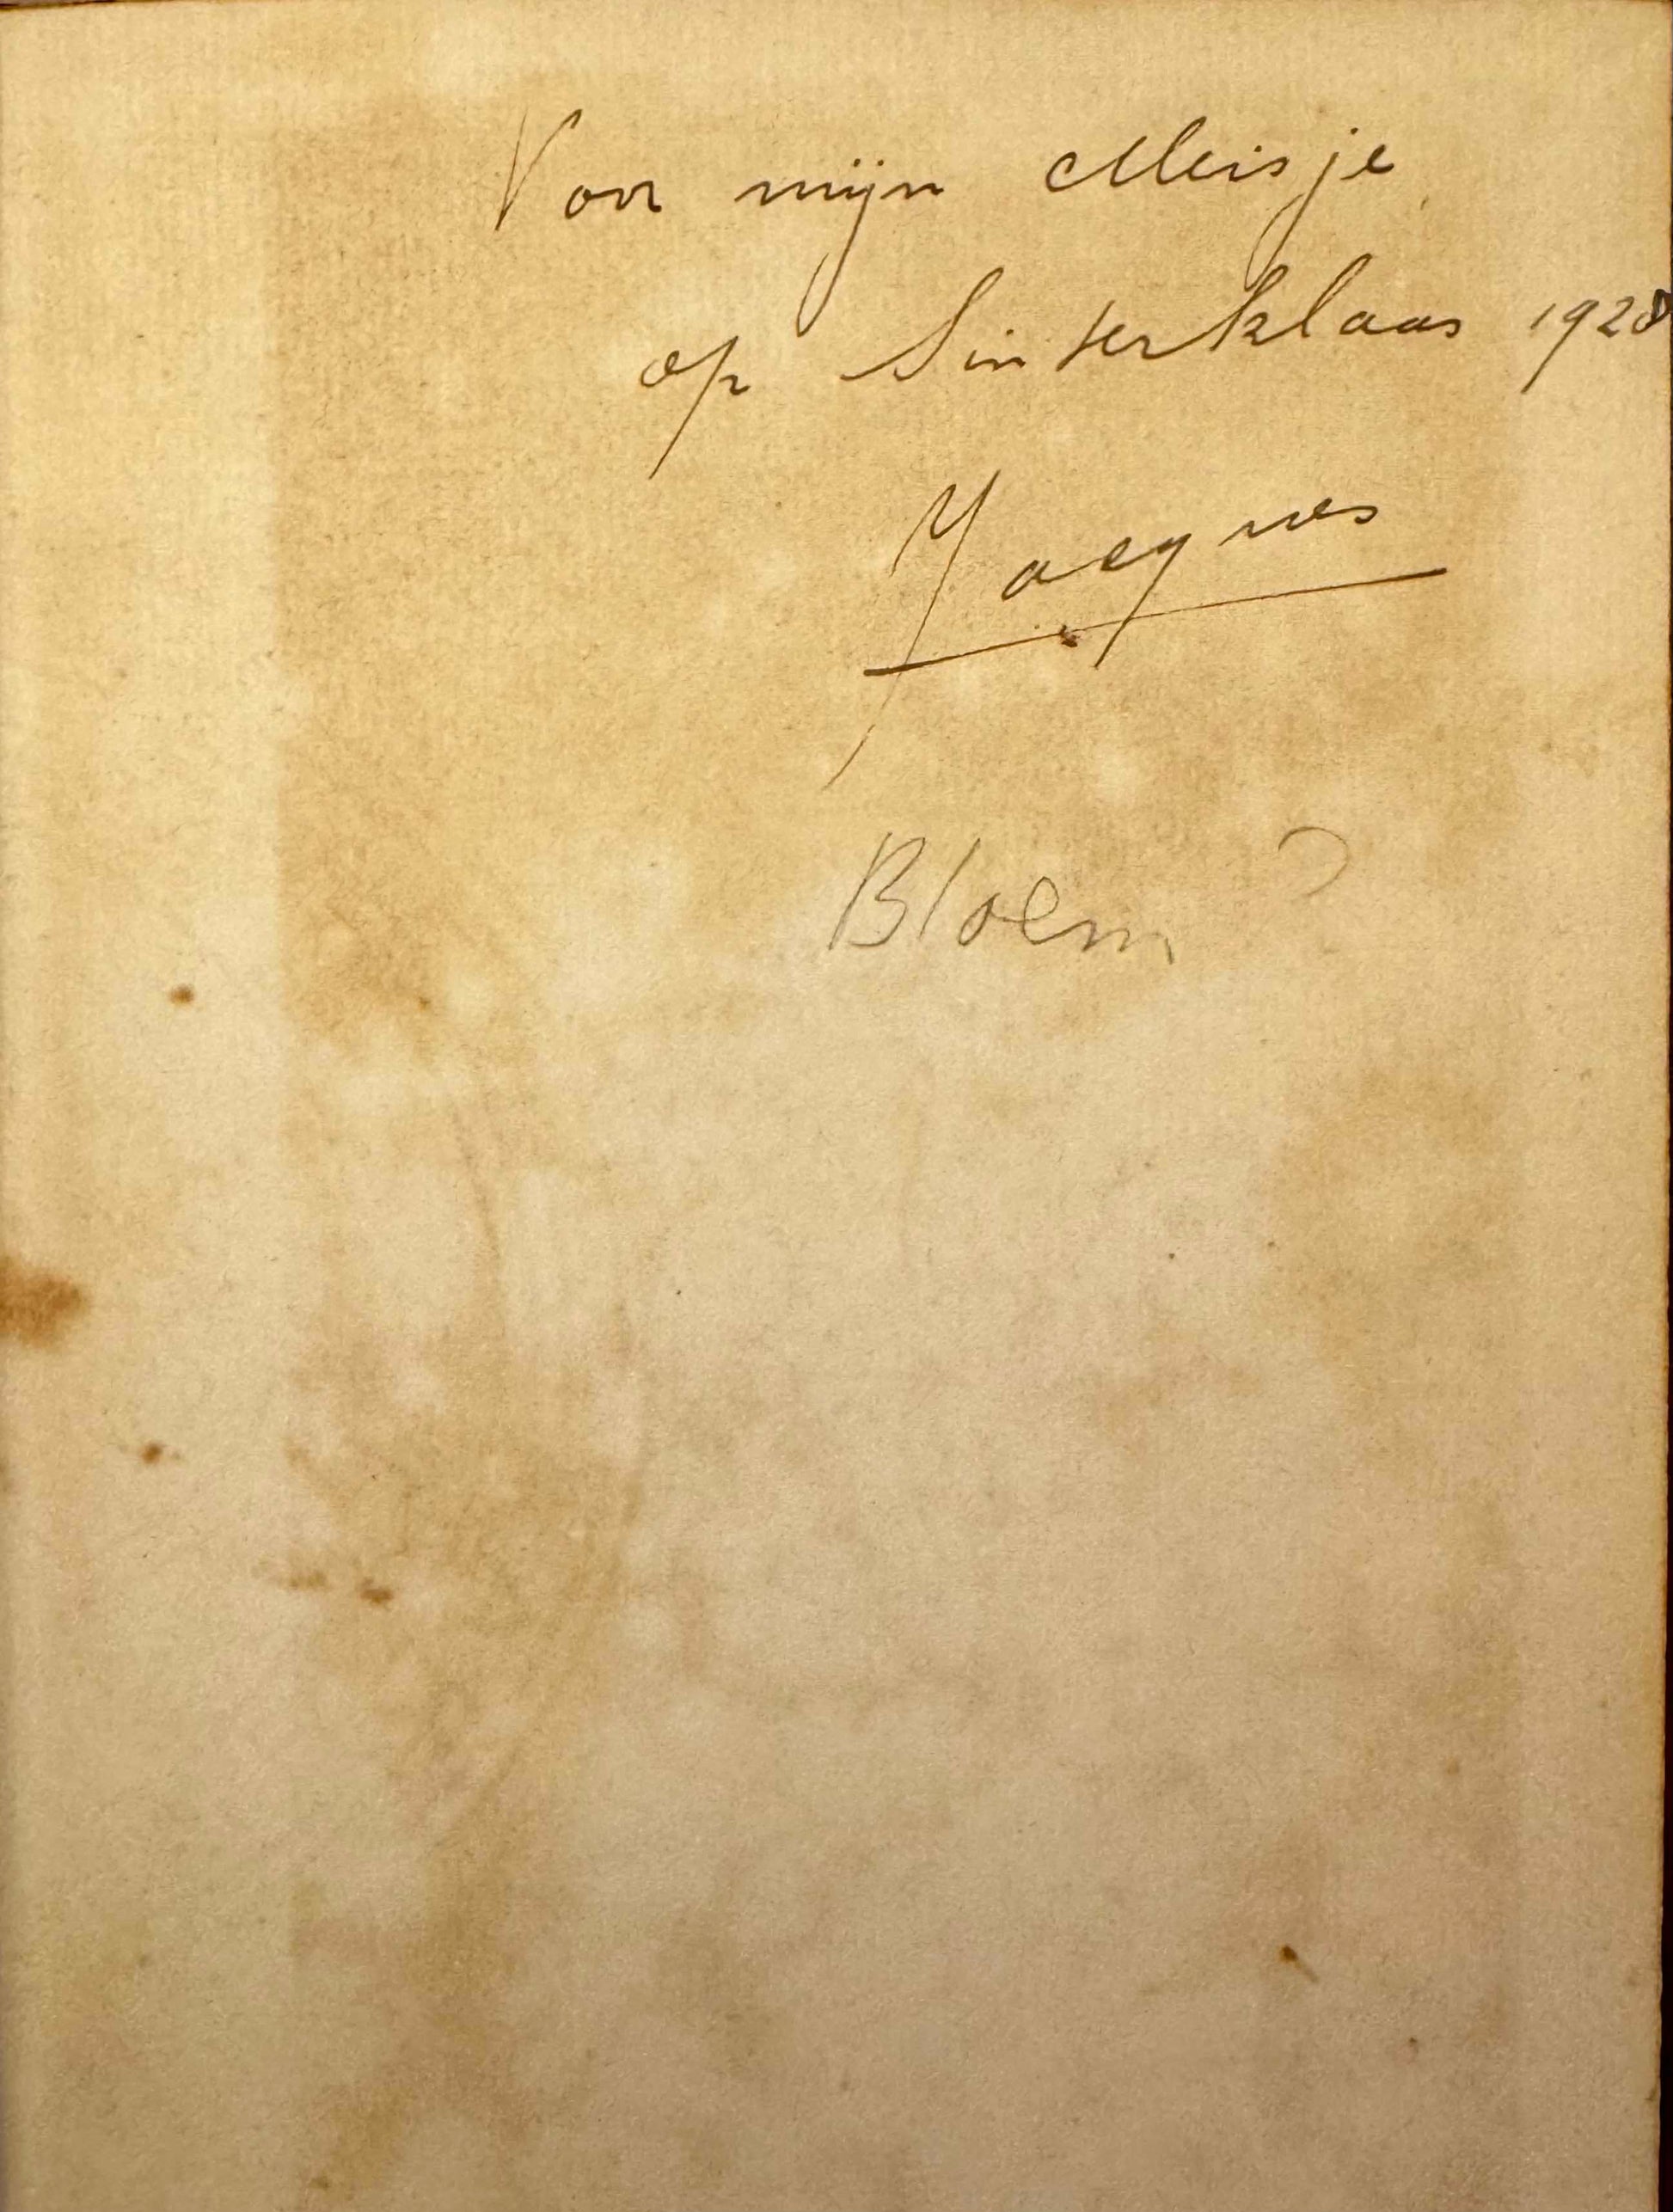 Voor mijn Meisje
op Sinterklaas 1928
Jacques
Bloem ?